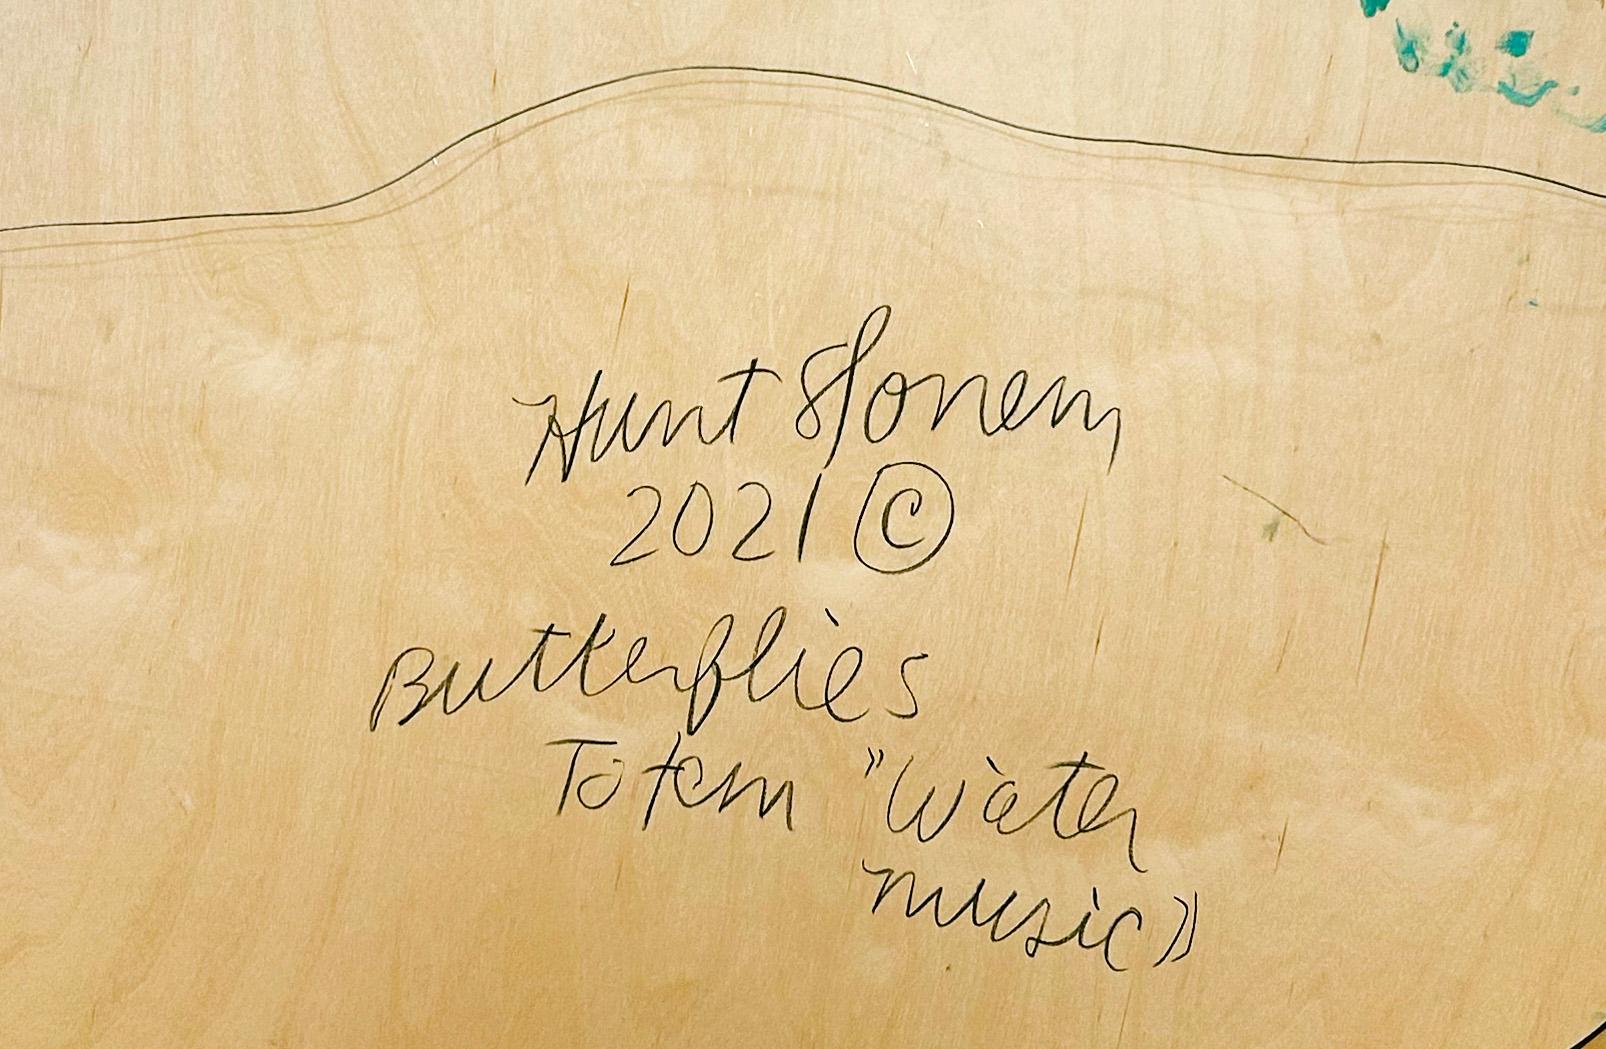 Hunt Slonem
2021 ©
Butterflies
Totem "Water
music"